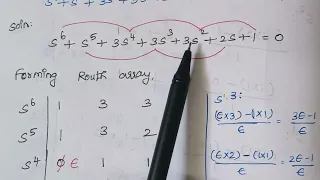 Soln:
s⁶ + s⁵ + 3s⁴ + 3s³ + 3s² + 2s + 1 = 0
Forming Routh array.
s⁶ 1 3 3
s⁵ 1 3 2
s⁴ 0 ε 1 1
s³:
(ε×3) - (1×1) / ε = 3ε-1 / ε
(ε×2) - (1×1) / ε = 2ε-1 / ε